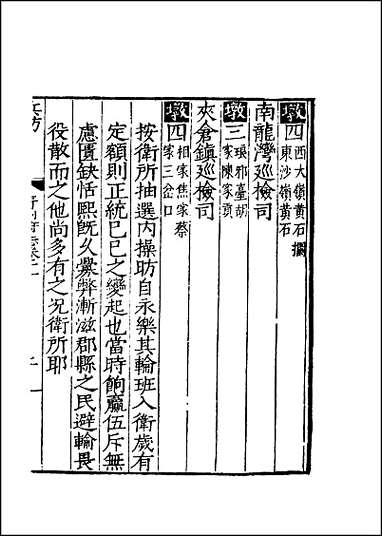 墩四西大嶺黄石攔東沙嶺黄石
南龍灣巡檢司
墩三琅邪臺胡家陳家貢
夾倉鎮巡檢司
墩四相家焦家蔡家三岔口
按衛所抽選内操昉自永樂其輪班入衛歲有
定額則正統己巳之變起也當時餉羸伍斥無
慮匱缺恬熙既久釁弊漸滋郡縣之民避輸畏
役散而之他尚多有之况衛所耶